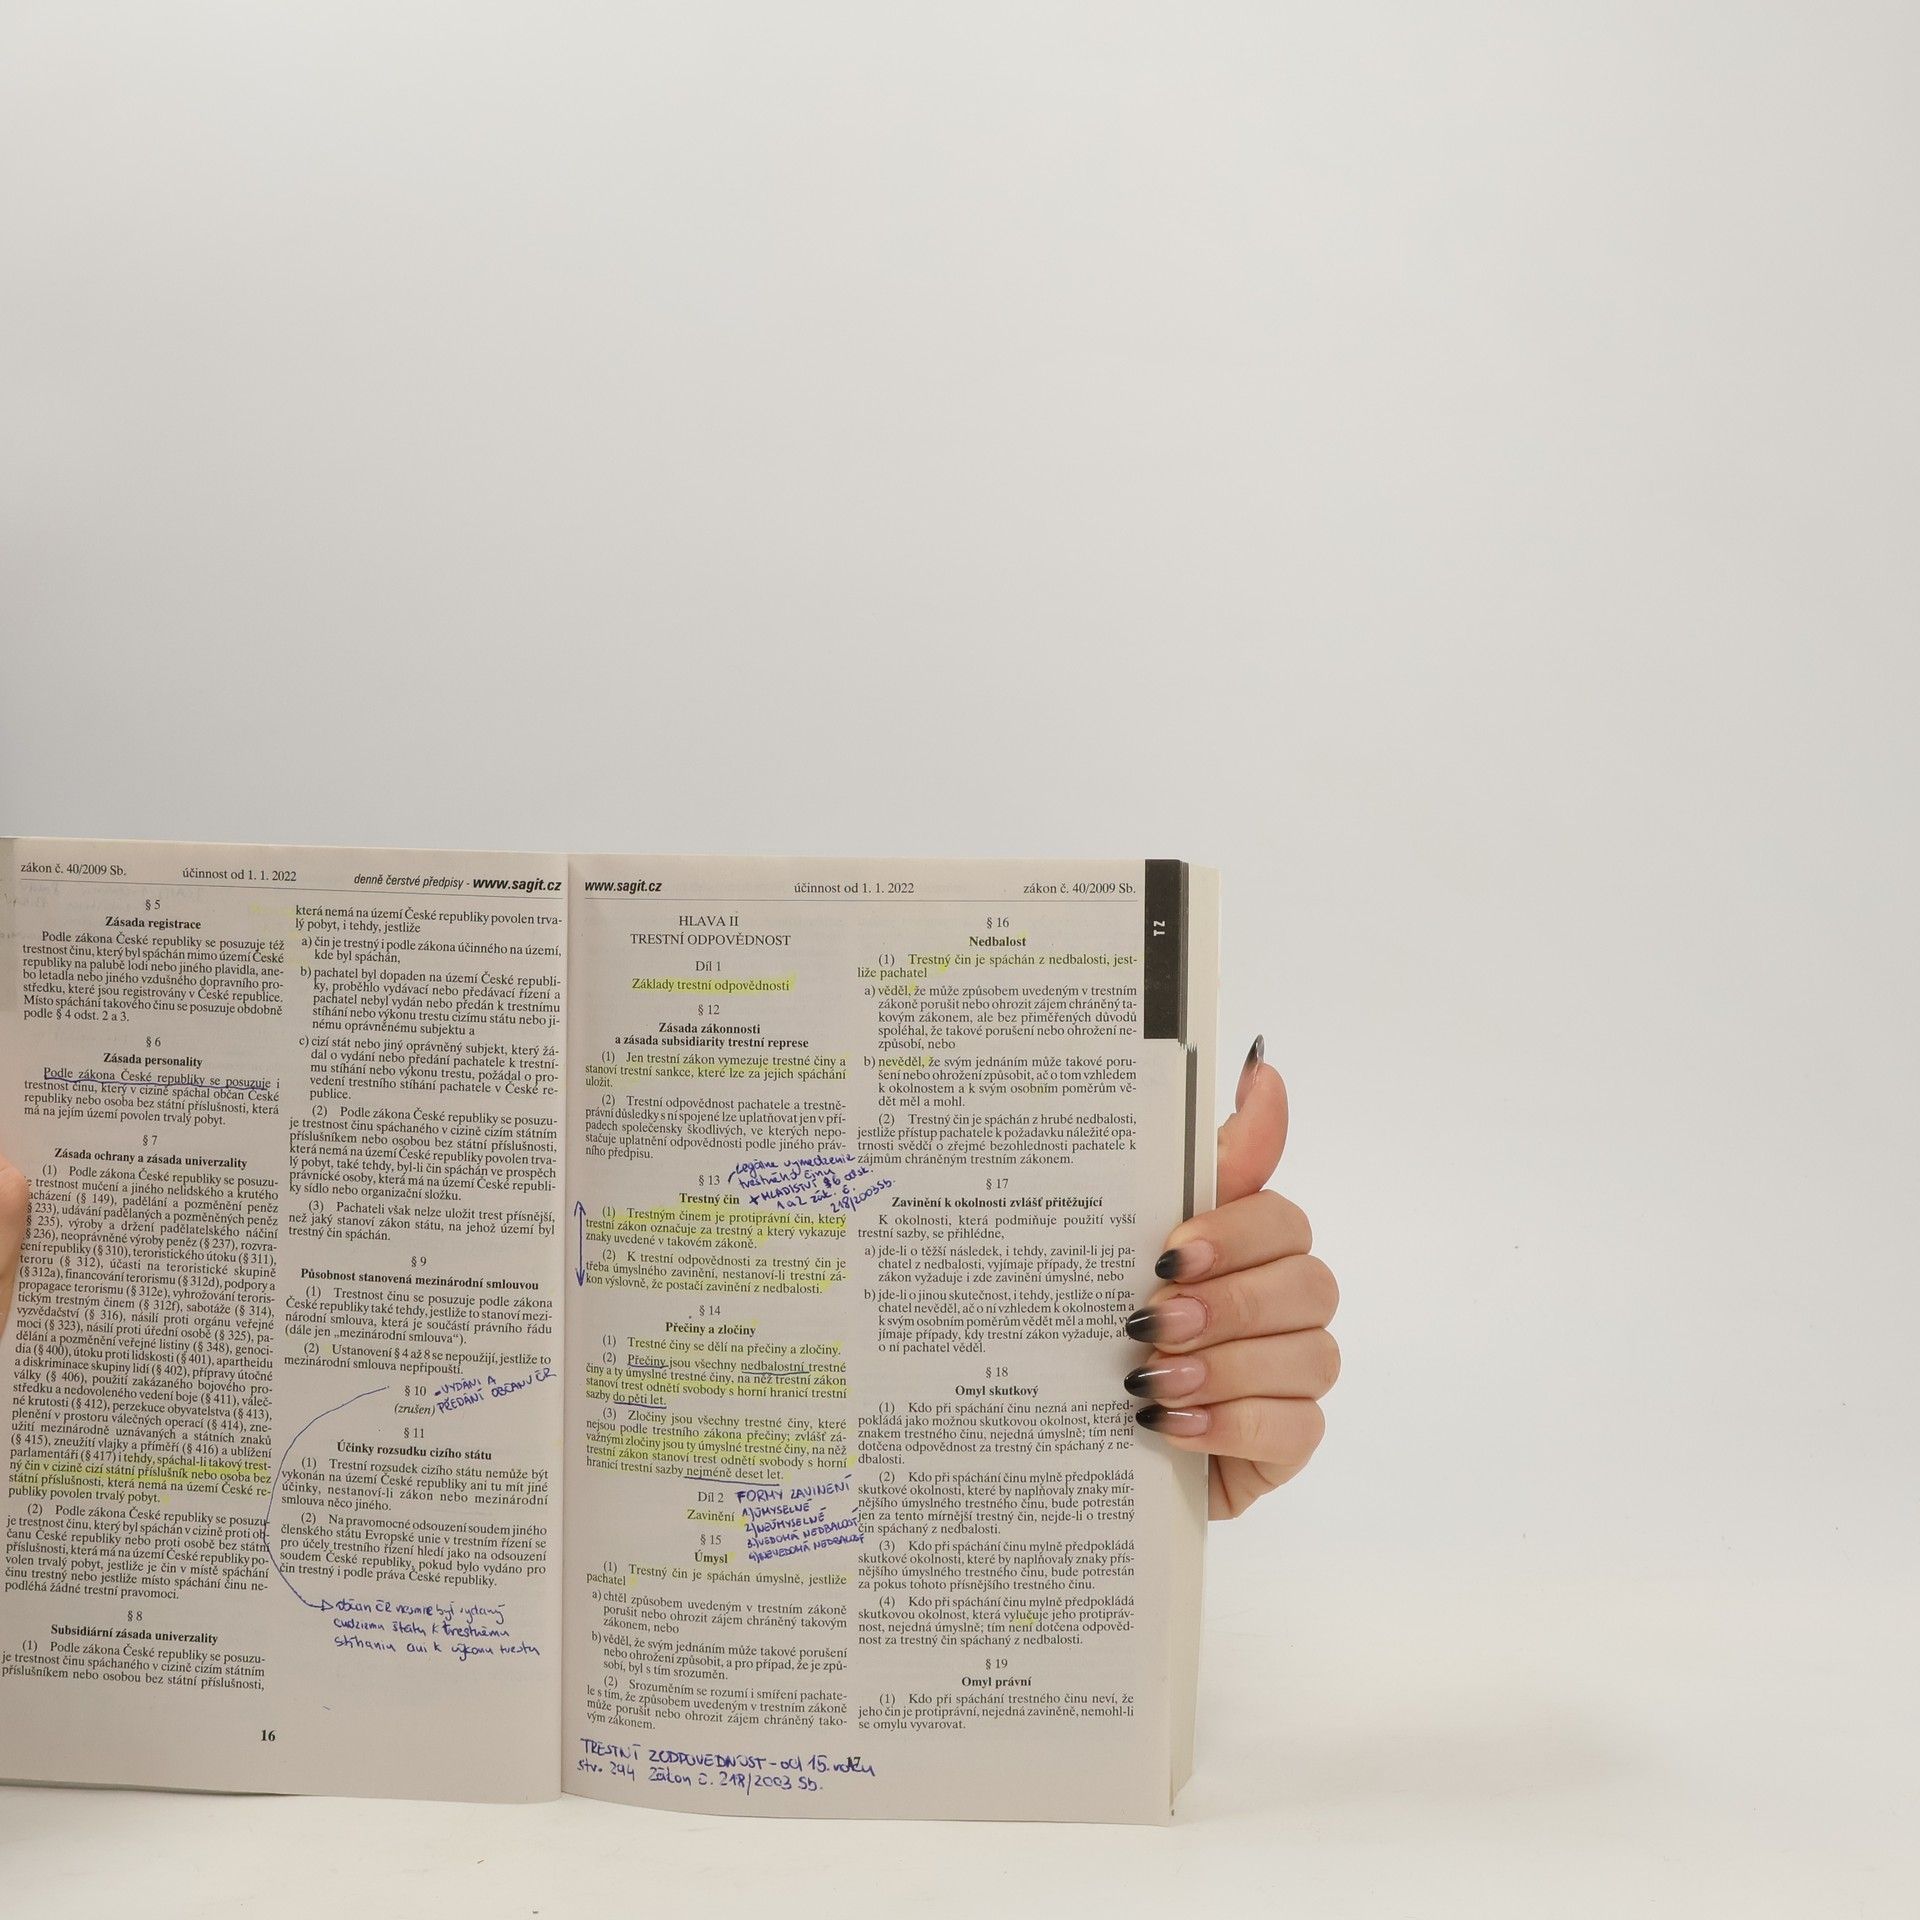 zákon č. 40/2009 Sb.
účinnost od 1. 1. 2022
denně čerstvé předpisy - www.sagit.cz
§ 5
Zásada registrace
Podle zákona České republiky se posuzuje též
trestnost činu, který byl spáchán mimo území České
republiky na palubě lodi nebo jiného plavidla, ane-
bo letadla nebo jiného vzdušného dopravního pro-
středku, které jsou registrovány v České republice.
Místo spáchání takového činu se posuzuje obdobně
podle § 4 odst. 2 a 3.
§ 6
Zásada personality
Podle zákona České republiky se posuzuje i
trestnost činu, který v cizině spáchal občan České
republiky nebo osoba bez státní příslušnosti, která
má na jejím území povolen trvalý pobyt.
§ 7
Zásada ochrany a zásada univerzality
(1) Podle zákona České republiky se posuzu-
e trestnost mučení a jiného nelidského a krutého
acházení (§ 149), padělání a pozměnění peněz
§ 233), udávání padělaných a pozměněných peněz
§ 235), výroby a držení padělatelského náčiní
§ 236), neoprávněné výroby peněz (§ 237), rozvra-
cení republiky (§ 310), teroristického útoku (§ 311),
teroru (§ 312), účasti na teroristické skupině
(§ 312a), financování terorismu (§ 312d), podpory a
propagace terorismu (§ 312e), vyhrožování teroris-
tickým trestným činem (§ 312f), sabotáže (§ 314),
vyzvědačství (§ 316), násilí proti orgánu veřejné
moci (§ 323), násilí proti úřední osobě (§ 325), pa-
dělání a pozměnění veřejné listiny (§ 348), genoci-
dia (§ 400), útoku proti lidskosti (§ 401), apartheidu
a diskriminace skupiny lidí (§ 402), přípravy útočné
války (§ 406), použití zakázaného bojového pro-
středku a nedovoleného vedení boje (§ 411), váleč-
né krutosti (§ 412), perzekuce obyvatelstva (§ 413),
plenění v prostoru válečných operací (§ 414), zne-
užití mezinárodně uznávaných a státních znaků
(§ 415), zneužití vlajky a příměří (§ 416) a ublížení
parlamentáři (§ 417) i tehdy, spáchal-li takový trest-
ný čin v cizině cizí státní příslušník nebo osoba bez
státní příslušnosti, která nemá na území České re-
publiky povolen trvalý pobyt.
(2) Podle zákona České republiky se posuzu-
je trestnost činu, který byl spáchán v cizině proti ob-
čanu České republiky nebo proti osobě bez státní
příslušnosti, která má na území České republiky po-
volen trvalý pobyt, jestliže je čin v místě spáchání
činu trestný nebo jestliže místo spáchání činu ne-
podléhá žádné trestní pravomoci.
§ 8
Subsidiární zásada univerzality
(1) Podle zákona České republiky se posuzu-
je trestnost činu spáchaného v cizině cizím státním
příslušníkem nebo osobou bez státní příslušnosti,
která nemá na území České republiky povolen trva-
lý pobyt, i tehdy, jestliže
a) čin je trestný i podle zákona účinného na území,
kde byl spáchán,
b) pachatel byl dopaden na území České republi-
ky, proběhlo vydávací nebo předávací řízení a
pachatel nebyl vydán nebo předán k trestnímu
stíhání nebo výkonu trestu cizímu státu nebo ji-
nému oprávněnému subjektu a
c) cizí stát nebo jiný oprávněný subjekt, který žá-
dal o vydání nebo předání pachatele k trestní-
mu stíhání nebo výkonu trestu, požádal o pro-
vedení trestního stíhání pachatele v České re-
publice.
(2) Podle zákona České republiky se posuzu-
je trestnost činu spáchaného v cizině cizím státním
příslušníkem nebo osobou bez státní příslušnosti,
která nemá na území České republiky povolen trva-
lý pobyt, také tehdy, byl-li čin spáchán ve prospěch
právnické osoby, která má na území České republi-
ky sídlo nebo organizační složku.
(3) Pachateli však nelze uložit trest přísnější,
než jaký stanoví zákon státu, na jehož území byl
trestný čin spáchán.
§ 9
Působnost stanovená mezinárodní smlouvou
(1) Trestnost činu se posuzuje podle zákona
České republiky také tehdy, jestliže to stanoví mezi-
národní smlouva, která je součástí právního řádu
(dále jen „mezinárodní smlouva“).
(2) Ustanovení § 4 až 8 se nepoužijí, jestliže to
mezinárodní smlouva nepřipouští.
§ 10 - VYDÁNÍ A
(zrušen) PŘEDÁNÍ OBČANŮ ČR
§ 11
Účinky rozsudku cizího státu
(1) Trestní rozsudek cizího státu nemůže být
vykonán na území České republiky ani tu mít jiné
účinky, nestanoví-li zákon nebo mezinárodní
smlouva něco jiného.
(2) Na pravomocné odsouzení soudem jiného
členského státu Evropské unie v trestním řízení se
pro účely trestního řízení hledí jako na odsouzení
soudem České republiky, pokud bylo vydáno pro
čin trestný i podle práva České republiky.
občan ČR nesmie byť vydaný
cudziemu štátu k trestnému
stíhaniu ani k výkonu trestu
16
www.sagit.cz
účinnost od 1. 1. 2022
zákon č. 40/2009 Sb.
TZ
HLAVA II
TRESTNÍ ODPOVĚDNOST
Díl 1
Základy trestní odpovědnosti
§ 12
Zásada zákonnosti
a zásada subsidiarity trestní represe
(1) Jen trestní zákon vymezuje trestné činy a
stanoví trestní sankce, které lze za jejich spáchání
uložit.
(2) Trestní odpovědnost pachatele a trestně-
právní důsledky s ní spojené lze uplatňovat jen v pří-
padech společensky škodlivých, ve kterých nepo-
stačuje uplatnění odpovědnosti podle jiného práv-
ního předpisu.
legálne vymedzenie
trestného činu
+ MLADISTVÍ §6 odst.
1 a 2 zák. č.
218/2003 Sb.
§ 13
Trestný čin
(1) Trestným činem je protiprávní čin, který
trestní zákon označuje za trestný a který vykazuje
znaky uvedené v takovém zákoně.
(2) K trestní odpovědnosti za trestný čin je
třeba úmyslného zavinění, nestanoví-li trestní zá-
kon výslovně, že postačí zavinění z nedbalosti.
§ 14
Přečiny a zločiny
(1) Trestné činy se dělí na přečiny a zločiny.
(2) Přečiny jsou všechny nedbalostní trestné
činy a ty úmyslné trestné činy, na něž trestní zákon
stanoví trest odnětí svobody s horní hranicí trestní
sazby do pěti let.
(3) Zločiny jsou všechny trestné činy, které
nejsou podle trestního zákona přečiny; zvlášť zá-
važnými zločiny jsou ty úmyslné trestné činy, na něž
trestní zákon stanoví trest odnětí svobody s horní
hranicí trestní sazby nejméně deset let.
Díl 2 FORMY ZAVINENÍ
Zavinění 1) ÚMYSELNÉ
2) NEÚMYSELNÉ
3) VEDOMÁ NEDBALOSŤ
4) NEVEDOMÁ NEDBALOSŤ
§ 15
Úmysl
(1) Trestný čin je spáchán úmyslně, jestliže
pachatel
a) chtěl způsobem uvedeným v trestním zákoně
porušit nebo ohrozit zájem chráněný takovým
zákonem, nebo
b) věděl, že svým jednáním může takové porušení
nebo ohrožení způsobit, a pro případ, že je způ-
sobí, byl s tím srozuměn.
(2) Srozuměním se rozumí i smíření pachate-
le s tím, že způsobem uvedeným v trestním zákoně
může porušit nebo ohrozit zájem chráněný tako-
vým zákonem.
§ 16
Nedbalost
(1) Trestný čin je spáchán z nedbalosti, jest-
liže pachatel
a) věděl, že může způsobem uvedeným v trestním
zákoně porušit nebo ohrozit zájem chráněný ta-
kovým zákonem, ale bez přiměřených důvodů
spoléhal, že takové porušení nebo ohrožení ne-
způsobí, nebo
b) nevěděl, že svým jednáním může takové poru-
šení nebo ohrožení způsobit, ač o tom vzhledem
k okolnostem a k svým osobním poměrům vě-
dět měl a mohl.
(2) Trestný čin je spáchán z hrubé nedbalosti,
jestliže přístup pachatele k požadavku náležité opa-
trnosti svědčí o zřejmé bezohlednosti pachatele k
zájmům chráněným trestním zákonem.
§ 17
Zavinění k okolnosti zvlášť přitěžující
K okolnosti, která podmiňuje použití vyšší
trestní sazby, se přihlédne,
a) jde-li o těžší následek, i tehdy, zavinil-li jej pa-
chatel z nedbalosti, vyjímaje případy, že trestní
zákon vyžaduje i zde zavinění úmyslné, nebo
b) jde-li o jinou skutečnost, i tehdy, jestliže o ní pa-
chatel nevěděl, ač o ní vzhledem k okolnostem a
k svým osobním poměrům vědět měl a mohl, vy
jímaje případy, kdy trestní zákon vyžaduje, ab
o ní pachatel věděl.
§ 18
Omyl skutkový
(1) Kdo při spáchání činu nezná ani nepřed-
pokládá jako možnou skutkovou okolnost, která je
znakem trestného činu, nejedná úmyslně; tím není
dotčena odpovědnost za trestný čin spáchaný z ne-
dbalosti.
(2) Kdo při spáchání činu mylně předpokládá
skutkové okolnosti, které by naplňovaly znaky mír-
nějšího úmyslného trestného činu, bude potrestán
jen za tento mírnější trestný čin, nejde-li o trestný
čin spáchaný z nedbalosti.
(3) Kdo při spáchání činu mylně předpokládá
skutkové okolnosti, které by naplňovaly znaky přís-
nějšího úmyslného trestného činu, bude potrestán
za pokus tohoto přísnějšího trestného činu.
(4) Kdo při spáchání činu mylně předpokládá
skutkovou okolnost, která vylučuje jeho protipráv-
nost, nejedná úmyslně; tím není dotčena odpověd-
nost za trestný čin spáchaný z nedbalosti.
§ 19
Omyl právní
(1) Kdo při spáchání trestného činu neví, že
jeho čin je protiprávní, nejedná zaviněně, nemohl-li
se omylu vyvarovat.
17
TRESTNÍ ZODPOVEDNOSŤ - od 15. roku
str. 294 Zákon č. 218/2003 Sb.